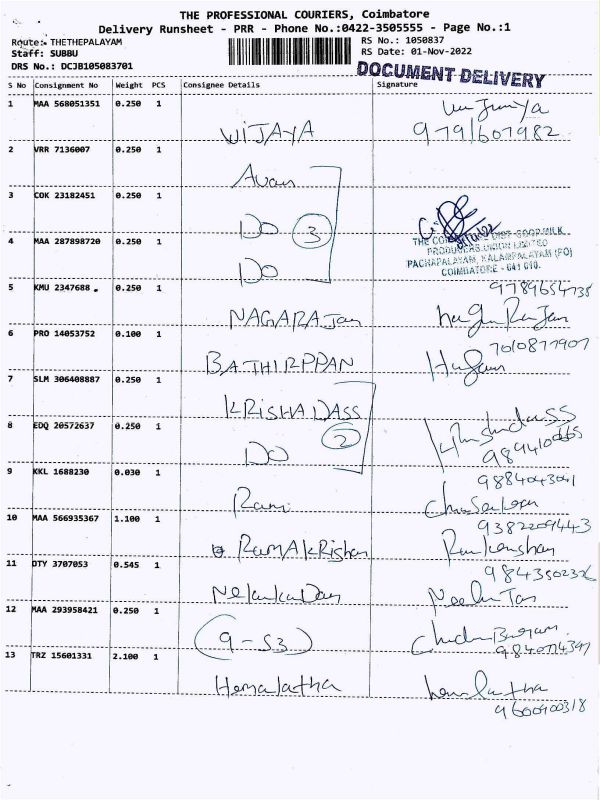 THE PROFESSIONAL COURIERS, Coimbatore
Delivery Runsheet - PRR - Phone No.:0422-3505555 - Page No.:1
Route: THETHEPALAYAM RS No.: 1050837
Staff: SUBBU RS Date: 01-Nov-2022
DRS No.: DCJB105083701
DOCUMENT DELIVERY
S No Consignment No Weight PCS Consignee Details Signature
1 MAA 568051351 0.250 1
WIJAYA 9791607982
2 VRR 7136007 0.250 1
Avan
3 COK 23182451 0.250 1
DO 3
4 MAA 287898720 0.250 1
DO
THE COIMBATORE DIST COOP MILK
PRODUCERS UNION LIMITED
PACHAPALAYAM, KALAMPALAYAM (PO)
COIMBATORE - 641 010.
5 KMU 2347688 0.250 1
NAGARAJan 9789654735
6 PRO 14053752 0.100 1
BATHIRPPAN 7010877907
7 SLM 306408887 0.250 1
KRISHADASS
8 EDQ 20572637 0.250 1
DO 2
9 KKL 1688230 0.030 1
Rani 9884043041
10 MAA 566935367 1.100 1
RAMAKRishan 9382209443
11 DTY 3707053 0.545 1
NelankaDan
12 MAA 293958421 0.250 1
(9-53)
13 TRZ 15601331 2.100 1
Hemalatha hemlatha
9600900318